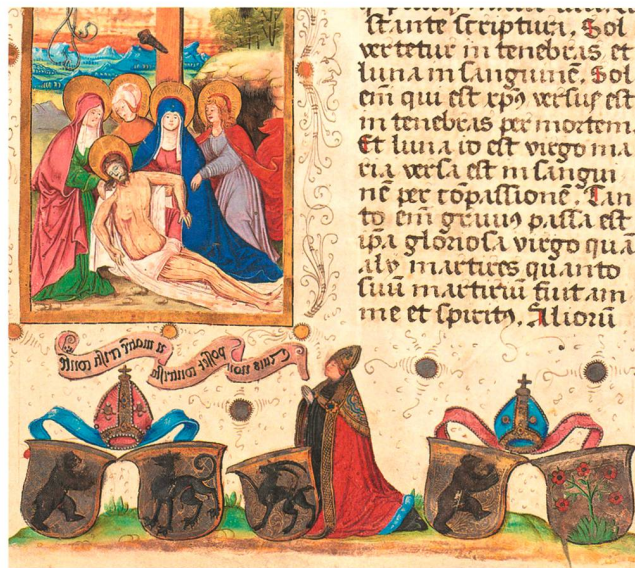 Quis non posset
stante scripturi. Sol
vertetur in tenebras et
luna in sanguinē. Sol
em̄ qui est xpꝰ versus est
in tenebras per mortem
Et luna id est virgo ma
ria versa est in sangui
nē per cōpassionē. Tan
to em̄ grauiꝰ passa est
ip̄a gloriosa virgo quā
alÿ martires quanto
suū martiriū fuit ani
me et spiritꝰ. Aliorū